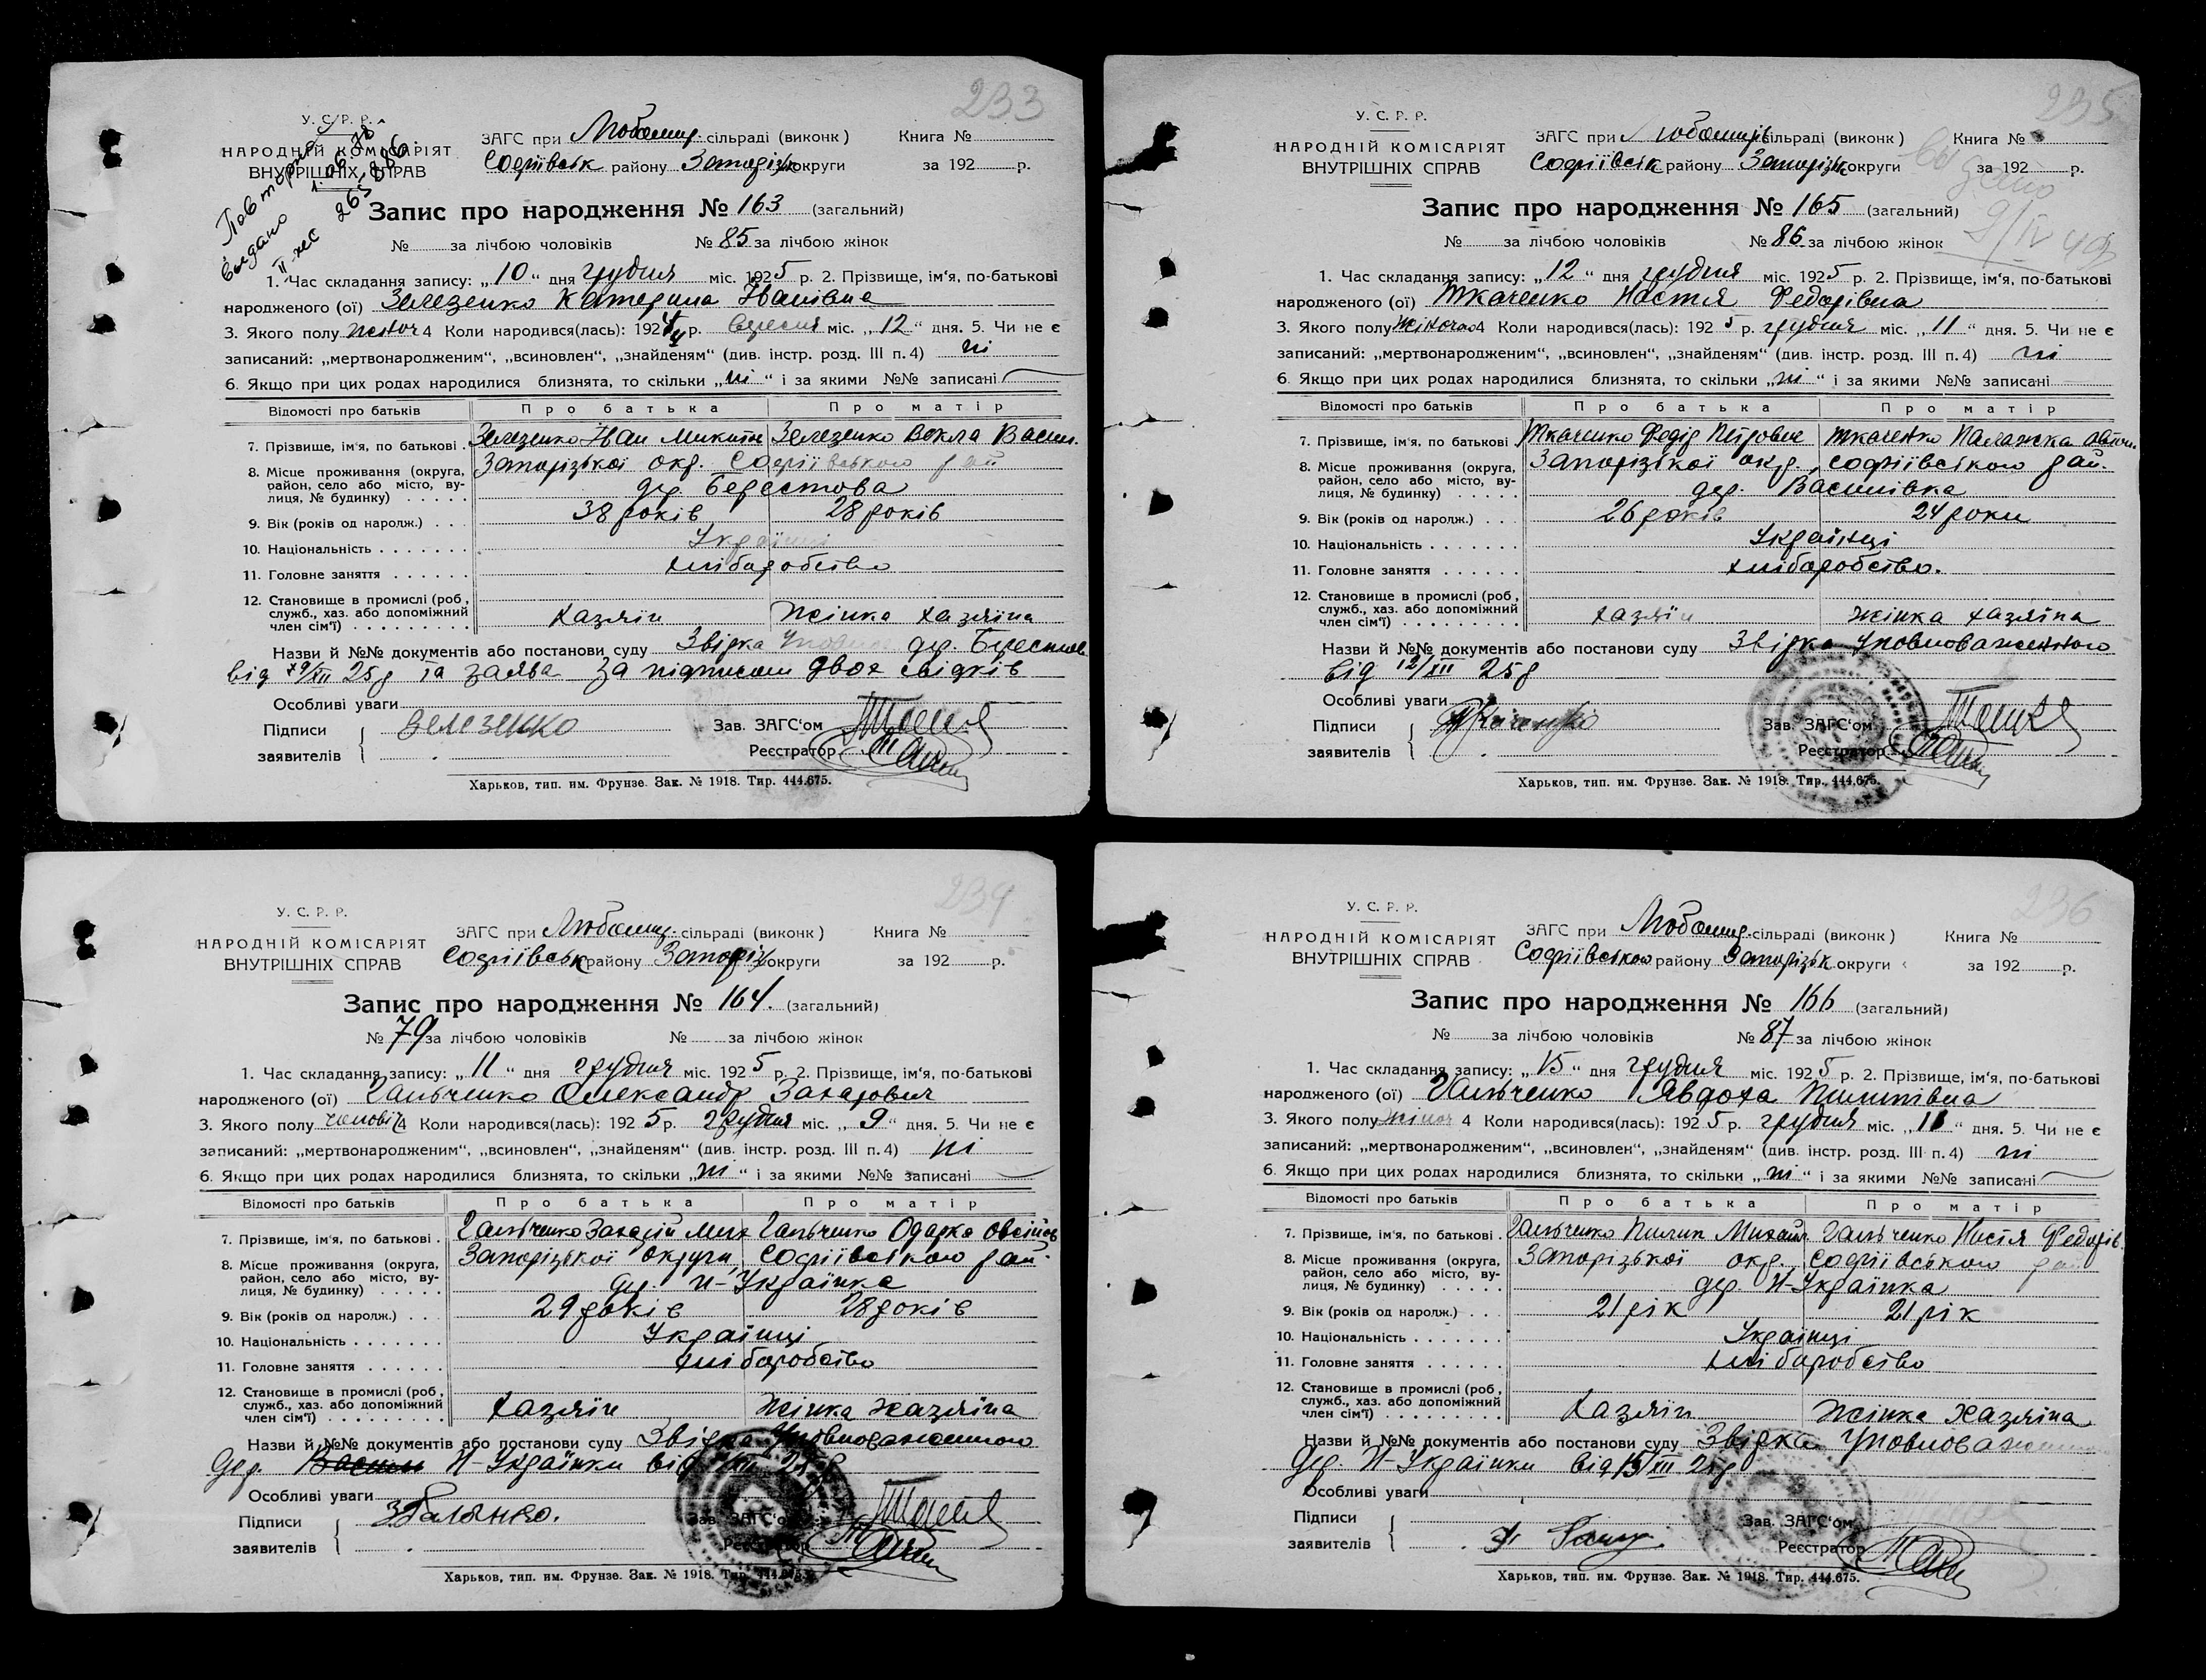 233
У. С. Р. Р.
НАРОДНІЙ КОМІСАРІЯТ
ВНУТРІШНІХ СПРАВ
Повторно
выдано
II-жс 265886
ЗАГС при Любомир. сільраді (виконк) Книга №
Софіївськ району Запорізьк округи за 192 р.
Запис про народження № 163 (загальний)
№ за лічбою чоловіків № 85 за лічбою жінок
1. Час складання запису: „10“ дня грудня міс. 1925 р. 2. Прізвище, ім'я, по-батькові
народженого (ої) Зелезенко Катерина Іванівна
3. Якого полу жіноч 4 Коли народився(лась): 1924 р. Вересня міс. „12“ дня. 5. Чи не є
записаний: „мертвонародженим“, „всиновлен“, „знайденям“ (див. інстр. розд. III п. 4) ні
6. Якщо при цих родах народилися близнята, то скільки „ні“ і за якими №№ записані
Відомості про батьків Про батька Про матір
7. Прізвище, ім'я, по батькові Зелезенко Іван Микитов Зелезенко Векла Васил.
8. Місце проживання (округа, район, село або місто, вулиця, № будинку) Запорізької окр. Софіївського рай
дер. Берестова
9. Вік (років од наролж.) 38 років 28 років
10. Національність Українці
11. Головне заняття хліборобство
12. Становище в промислі (роб, служб., хаз. або допоміжний член сім'ї) хазяїн жінка хазяїна
Назви й №№ документів або постанови суду Звірка дер. Берестов
від /XII 25р та заява за підписом двох свідків
Особливі уваги
Підписи Зелезенко Зав. ЗАГС'ом
заявителів Реєстратор
Харьков, тип. им. Фрунзе. Зак. № 1918. Тир. 444.675.
235
У. С. Р. Р.
НАРОДНІЙ КОМІСАРІЯТ
ВНУТРІШНІХ СПРАВ
ЗАГС при Любомирів сільраді (виконк) Книга №
Софіївськ району Запорізьк округи за 192 р.
Выдано
9/IV 49
Запис про народження № 165 (загальний)
№ за лічбою чоловіків № 86 за лічбою жінок
1. Час складання запису: „12“ дня грудня міс. 1925 р. 2. Прізвище, ім'я, по-батькові
народженого (ої) Ткаченко Настя Федорівна
3. Якого полу жіночого 4 Коли народився(лась): 1925 р. грудня міс. „11“ дня. 5. Чи не є
записаний: „мертвонародженим“, „всиновлен“, „знайденям“ (див. інстр. розд. III п. 4) ні
6. Якщо при цих родах народилися близнята, то скільки „ні“ і за якими №№ записані
Відомості про батьків Про батька Про матір
7. Прізвище, ім'я, по батькові Ткаченко Федір Петрович Ткаченко Палажка
8. Місце проживання (округа, район, село або місто, вулиця, № будинку) Запорізької окр. Софіївського рай.
дер. Василівка
9. Вік (років од наролж.) 26 років 24 роки
10. Національність Українці
11. Головне заняття хліборобство.
12. Становище в промислі (роб, служб., хаз. або допоміжний член сім'ї) хазяїн жінка хазяїна
Назви й №№ документів або постанови суду Звірка Уповноваженного
від 12/XII 25р
Особливі уваги
Підписи Ткаченко Зав. ЗАГС'ом
заявителів Реєстратор
Харьков, тип. им. Фрунзе. Зак. № 1918. Тир. 444.675.
234
У. С. Р. Р.
НАРОДНІЙ КОМІСАРІЯТ
ВНУТРІШНІХ СПРАВ
ЗАГС при Любомир. сільраді (виконк) Книга №
Софіївськ району Запоріз округи за 192 р.
Запис про народження № 164. (загальний)
№ 79 за лічбою чоловіків № за лічбою жінок
1. Час складання запису: „11“ дня грудня міс. 1925 р. 2. Прізвище, ім'я, по-батькові
народженого (ої) Гальченко Олександр Захарович
3. Якого полу чоловіч 4 Коли народився(лась): 1925 р. грудня міс. „9“ дня. 5. Чи не є
записаний: „мертвонародженим“, „всиновлен“, „знайденям“ (див. інстр. розд. III п. 4) ні
6. Якщо при цих родах народилися близнята, то скільки „ні“ і за якими №№ записані
Відомості про батьків Про батька Про матір
7. Прізвище, ім'я, по батькові Гальченко Захарій Мих Гальченко Одарка Овсіїв
8. Місце проживання (округа, район, село або місто, вулиця, № будинку) Запорізької округи, Софіївського рай.
дер. Н-Українка
9. Вік (років од наролж.) 29 років 28 років
10. Національність Українці
11. Головне заняття хліборобство
12. Становище в промислі (роб, служб., хаз. або допоміжний член сім'ї) хазяїн Жінка хазяїна
Назви й №№ документів або постанови суду Звірка Уповноваженного
дер. Н-Українки від 25р
Особливі уваги
Підписи Зав. ЗАГС'ом
заявителів Реєстратор
Харьков, тип. им. Фрунзе. Зак. № 1918. Тир. 444.675.
236
У. С. Р. Р.
НАРОДНІЙ КОМІСАРІЯТ
ВНУТРІШНІХ СПРАВ
ЗАГС при Любомир. сільраді (виконк) Книга №
Софіївського району Запорізьк округи за 192 р.
Запис про народження № 166 (загальний)
№ за лічбою чоловіків № 87 за лічбою жінок
1. Час складання запису: „15“ дня грудня міс. 1925 р. 2. Прізвище, ім'я, по-батькові
народженого (ої) Гальченко Явдоха Пилипівна
3. Якого полу жіноч 4 Коли народився(лась): 1925 р. грудня міс. „11“ дня. 5. Чи не є
записаний: „мертвонародженим“, „всиновлен“, „знайденям“ (див. інстр. розд. III п. 4) ні
6. Якщо при цих родах народилися близнята, то скільки „ні“ і за якими №№ записані
Відомості про батьків Про батька Про матір
7. Прізвище, ім'я, по батькові Гальченко Пилип Михайл Гальченко Настя Федорів.
8. Місце проживання (округа, район, село або місто, вулиця, № будинку) Запорізької окр. Софіївського рай
дер. Н-Українка
9. Вік (років од наролж.) 21 рік 21 рік
10. Національність Українці
11. Головне заняття хліборобство
12. Становище в промислі (роб, служб., хаз. або допоміжний член сім'ї) хазяїн Жінка Хазяїна
Назви й №№ документів або постанови суду Звірка Уповноваженного
дер. Н-Українки від 15/XII 25р
Особливі уваги
Підписи Зав. ЗАГС'ом
заявителів Реєстратор
Харьков, тип. им. Фрунзе. Зак. № 1918. Тир. 444.675.